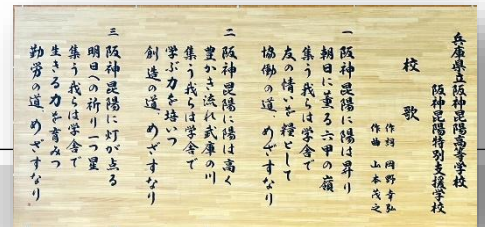 兵庫県立阪神昆陽高等学校
阪神昆陽特別支援学校
校歌
作詞 岡野幸弘
作曲 山本茂之
一 阪神昆陽に陽は昇り
朝日に薫る六甲の嶺
集う我らは学舎で
友の情いを糧として
協働の道 めざすなり
二 阪神昆陽に陽は高く
豊かき流れ武庫の川
集う我らは学舎で
学ぶ力を培いつ
創造の道 めざすなり
三 阪神昆陽に灯が点る
明日への祈り一つ星
集う我らは学舎で
生きる力を育みつ
勤労の道 めざすなり